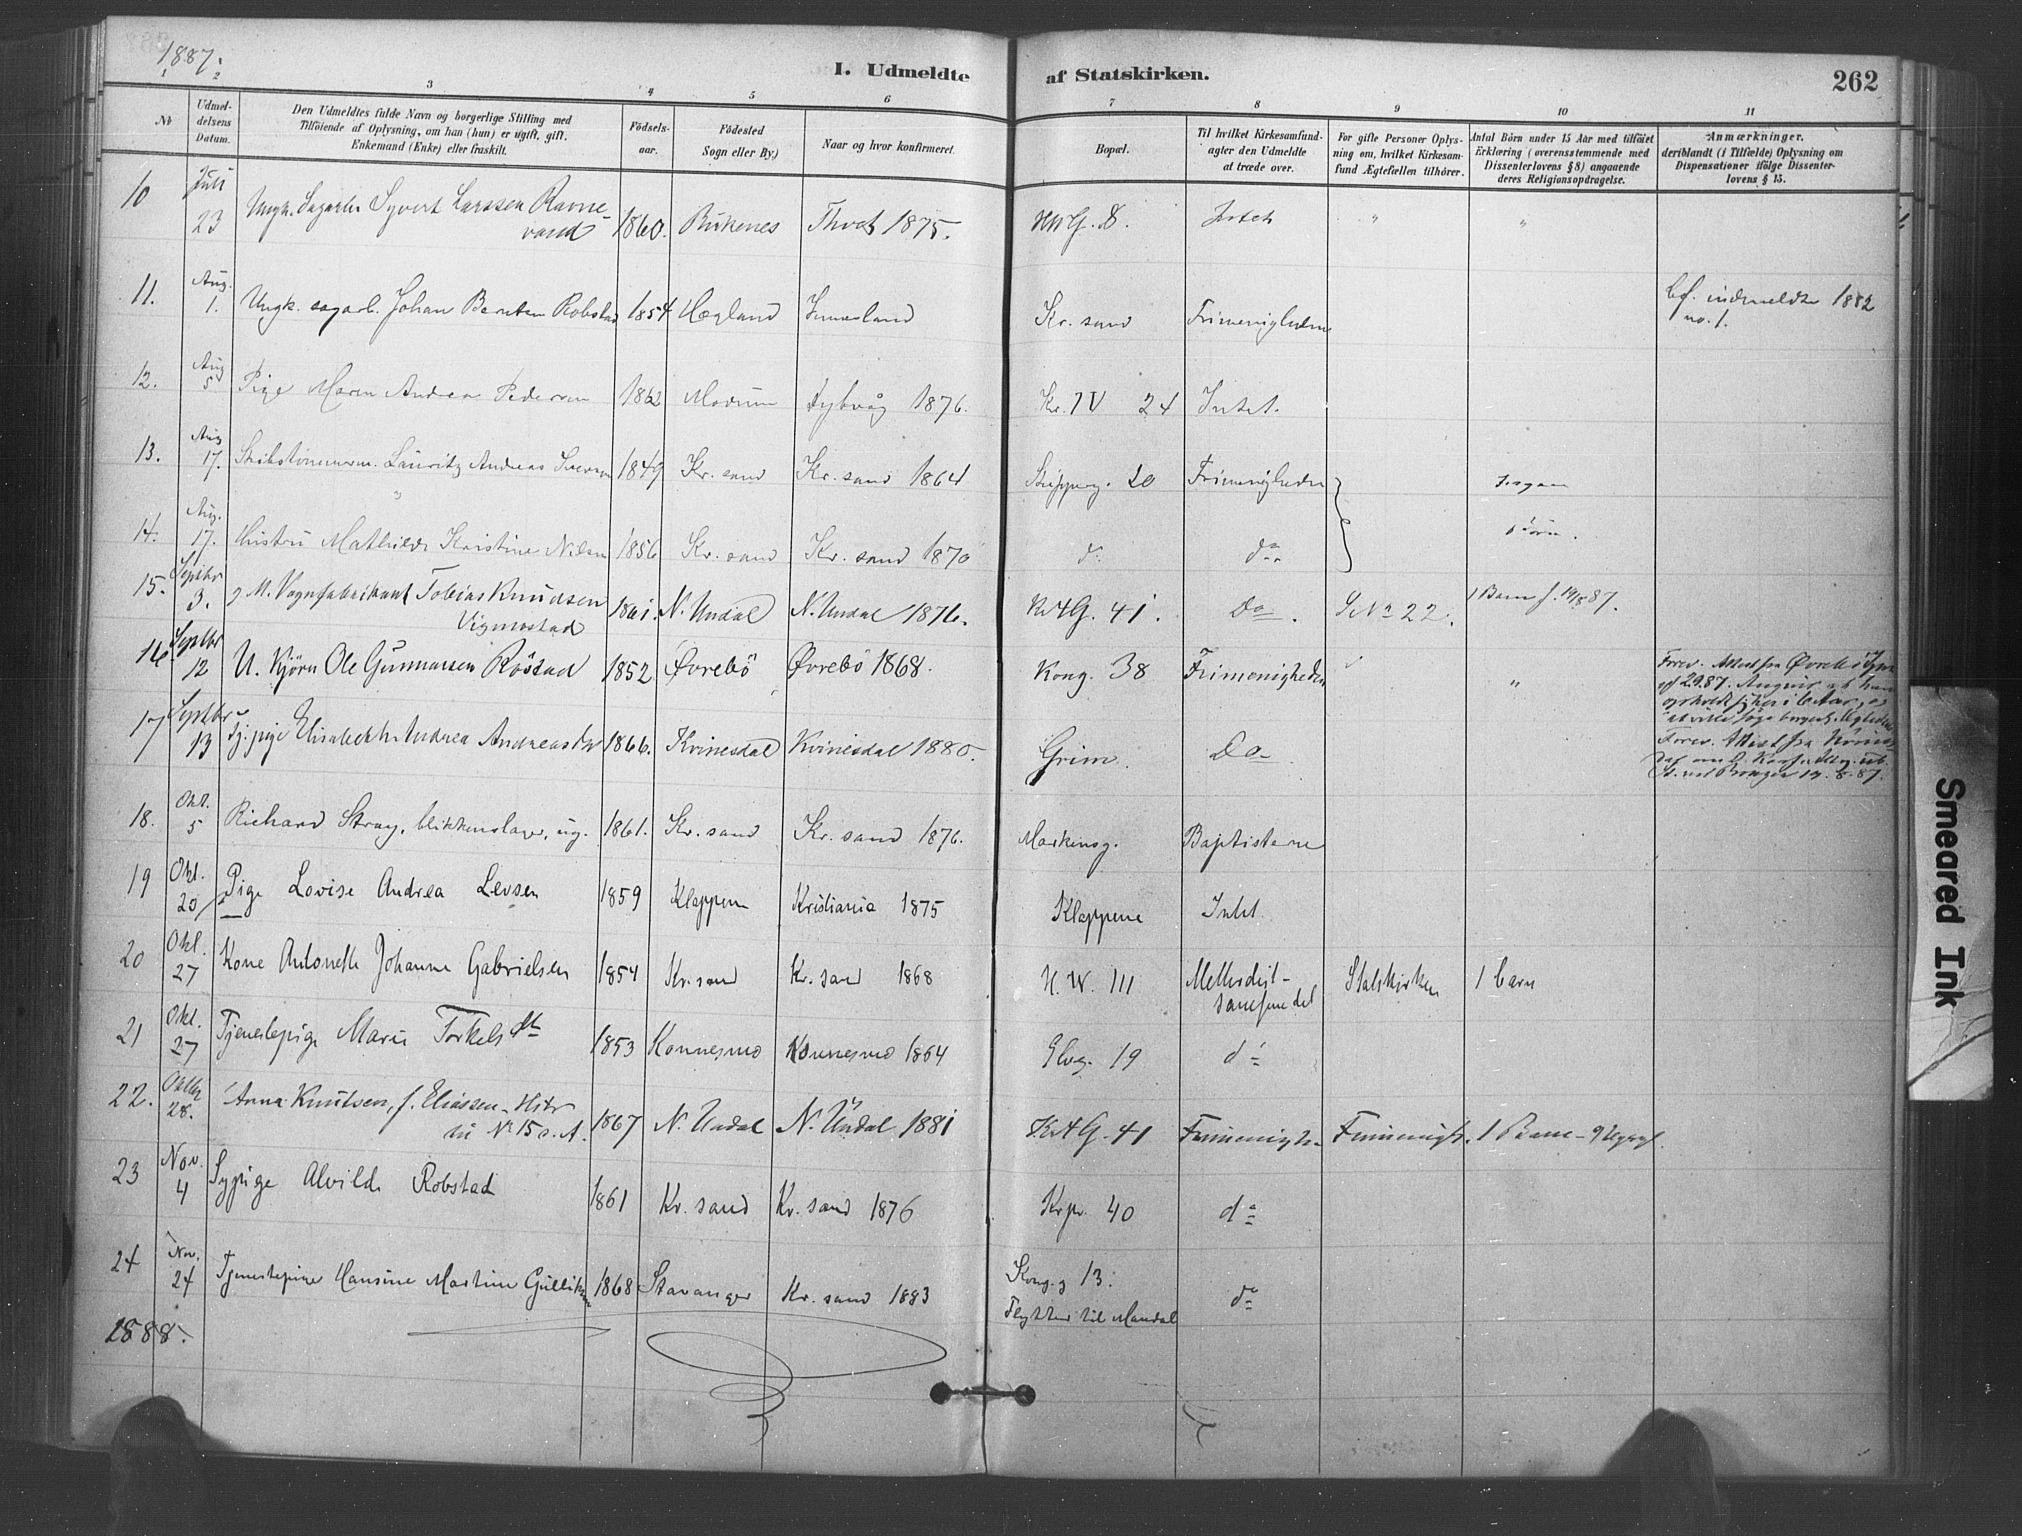 1887.
I. Udmeldte af Statskirken.
262
1 2 3 4 5 6 7 8 9 10 11
No
Udmel-
delsens
Datum.
Den Udmeldtes fulde Navn og borgerlige Stilling med
Tilföiende af Oplysning, om han (hun) er ugift, gift,
Enkemand (Enke) eller fraskilt.
Födsels-
aar.
Födested
Sogn eller By.)
Naar og hvor konfirmeret.
Bopæl.
Til hvilket Kirkesamfund
agter den Udmeldte
at træde over.
For gifte Personer Oplys-
ning om, hvilket Kirkesam-
fund Ægtefællen tilhörer.
Antal Börn under 15 Aar med tilföiet
Erklæring (overensstemmende med
Dissenterlovens § 8) angaaende
deres Religionsopdragelse.
Anmærkninger,
deriblandt (i Tilfælde) Oplysning om
Dispensationer ifölge Dissenter-
lovens § 15.
10 Juli 23 Ungk. Sagarb. Syvert Larssen Ravne-
vand 1860. Birkenes Thvet 1875. 8. Intet " "
11. Aug. 1. Ungk. sagarb. Johan Berntsen Robstad 1854 Høgland Kr. sand Frimenigheden
Cf. indmeldte 1882
no. 1.
12. Aug 5 Pige Maren Andrea Pedersen 1862 Modum Dybvåg 1876. Kr. IV 24 Intet.
13. Aug 17. Lauritz Andreas 1849 Kr. sand Kr. sand 1864 Skipperg. 20 Frimenigheden Ingen
14. Aug. 17. Hustru Mathilde Kristine Nilsen 1856 Kr. sand Kr. sand 1870 do do Børn.
15. Septbr 3. g M. Vognfabrikant Tobias Knudsen
Vigmostad 1861. N. Undal N. Undal 1876. 41. Do. S. No 22. 1 Barn f. 87.
16 Septbr 12 U. Kjörn Ole Gunnarsen Röstad 1852 Övrebö Övrebö 1868. Kong. 38 Frimenigheden "
Forev. Attest fra Övrebö
17 Septbr 13 Tj. pige Elisabeth Andrea Andreasdtr 1866. Kvinesdal Kvinesdal 1880. Grim. Do
Forev. Attest fra
18. Okt. 5 Richard Stray, blikkenslager, ug. 1861. Kr. sand Kr. sand 1876. Markensg. Baptisterne
19 Okt. 20 Pige Lovise Andrea Levsen 1859 Klappene Kristiania 1875 Klappene Intet.
20 Okt. 27 Kone Antonette Johanne Gabrielsen 1854 Kr. sand Kr. sand 1868 H. W. 111 Methodist-
samfundet Statskirken 1 barn
21 Okt. 27 Tjenestepige Marie Torkelsdtr 1853 Konnesmo Konnesmo 1864 Elveg. 19 do
22. Oktbr 28. Anna Knutsen, f. Eliassen - Hustr
til No 15 s. A. 1867 N. Undal N. Undal 1881 41 Frimenigh. Frimenigh. 1 Barn
23 Nov. 4 Sypige Alvilde Robstad 1861 Kr. sand Kr. sand 1876 40 do
24 Nov. 24 Tjenestepige Hansine Martine Gulliksen 1868 Stavanger Kr. sand 1883 Kong. g 13.
Flytter til Mandal do
1888.
Smeared Ink